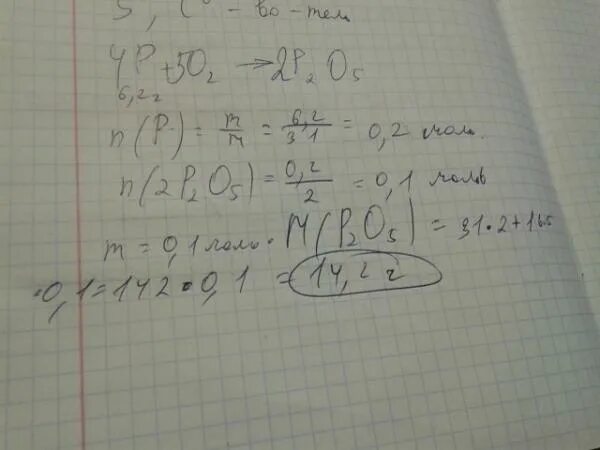 5, C° - во-тель
4P + 5O₂ → 2P₂O₅
6,2 г
n(P) = m/M = 6,2/31 = 0,2 моль.
n(2P₂O₅) = 0,2/2 = 0,1 моль
m = 0,1 моль · M(P₂O₅) = 31·2+16·5
·0,1 = 142·0,1 = 14,2 г